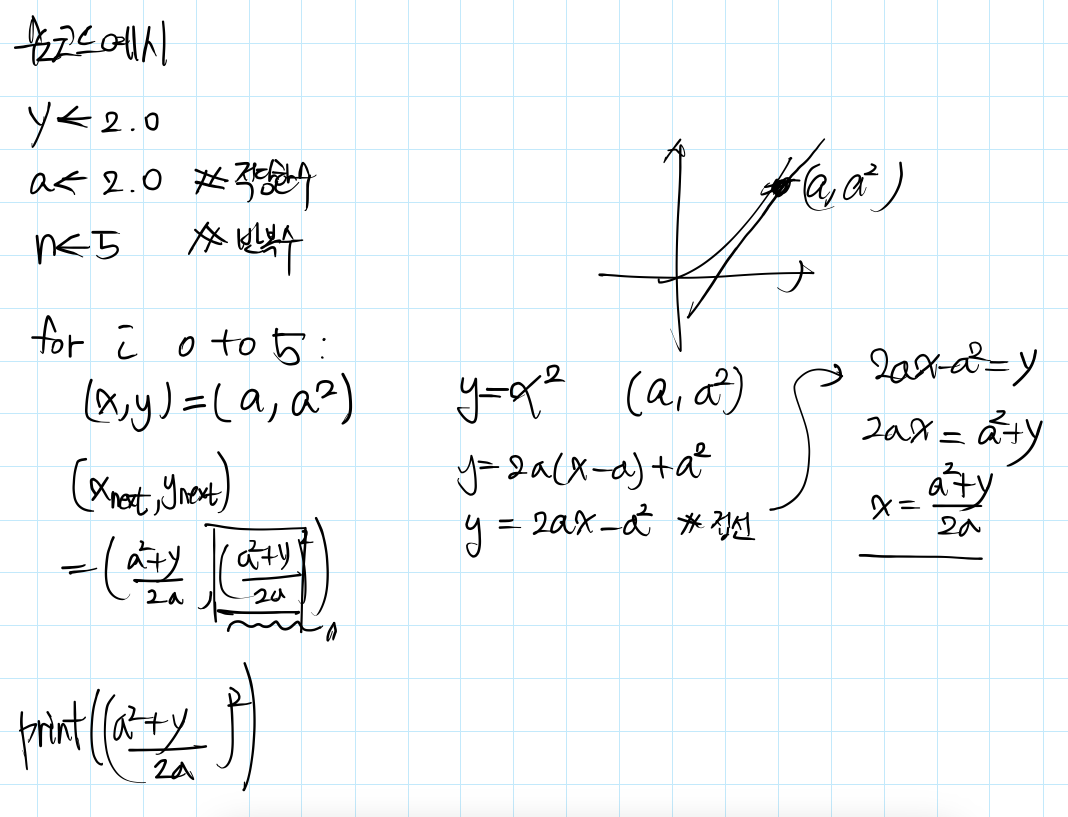 예시
y ← 2.0
a ← 2.0 # 적당한 수
n ← 5 # 반복수
for i 0 to 5:
(x, y) = (a, a²)
(x_next, y_next)
= ( (a²+y)/2a , ((a²+y)/2a)² )
print(((a²+y)/2a)²)
(a, a²)
y = x² (a, a²)
y = 2a(x-a) + a²
y = 2ax - a² # 접선
2ax - a² = y
2ax = a² + y
x = (a²+y)/2a